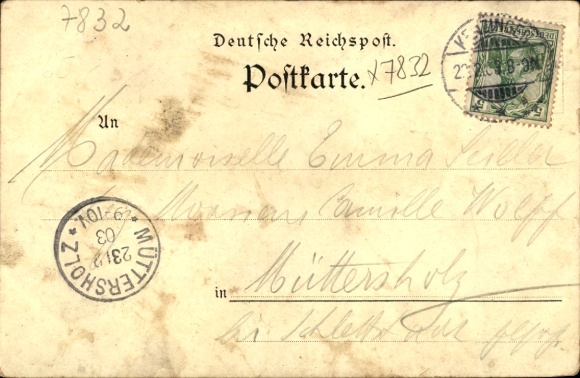 7832
Deutsche Reichspost.
Postkarte. x7832
An
Mademoiselle Emma Seiler
Monsieur Camille Wolff
in Müttersholz
bei Schlettstadt
MÜTTERSHOLZ
23 12
03
9-10V.